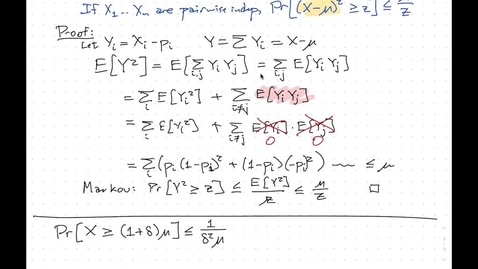 If X₁... Xₙ are pairwise indep, Pr[(X-μ)² ≥ z] ≤ μ/z
Proof:
Let Yᵢ = Xᵢ-pᵢ Y = ∑ Yᵢ = X-μ
E[Y²] = E[∑ᵢ,ⱼ YᵢYⱼ] = ∑ᵢ,ⱼ E[YᵢYⱼ]
= ∑ᵢ E[Yᵢ²] + ∑ᵢ≠ⱼ E[YᵢYⱼ]
= ∑ᵢ E[Yᵢ²] + ∑ᵢ≠ⱼ E[Yᵢ]·E[Yⱼ]
0 0
= ∑ᵢ(pᵢ(1-pᵢ)² + (1-pᵢ)(-pᵢ)²) ~~ ≤ μ
Markov: Pr[Y² ≥ z] ≤ E[Y²]/z ≤ μ/z □
Pr[X ≥ (1+δ)μ] ≤ 1/δ²μ